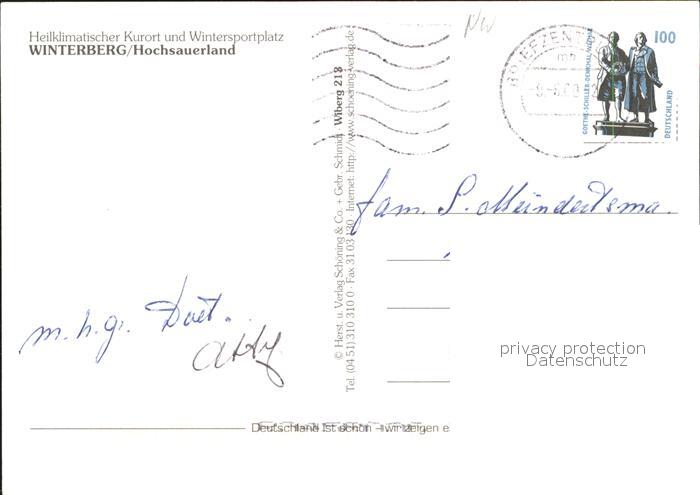 Heilklimatischer Kurort und Wintersportplatz
WINTERBERG/Hochsauerland
NW
BRIEFZENTR
mn
100
GOETHE-SCHILLER-DENKMAL WEIMAR
DEUTSCHLAND
© Herst. u. Verlag Schöning & Co. + Gebr. Schmidt Wiberg 218
Tel. (04 51) 310 310 0 · Fax 31 03 130 · Internet: http://www.schoening-verlag.de
fam. S. Meindertsma.
m. h. gr. Doet.
Atty
privacy protection
Datenschutz
Deutschland ist schön - wir zeigen e